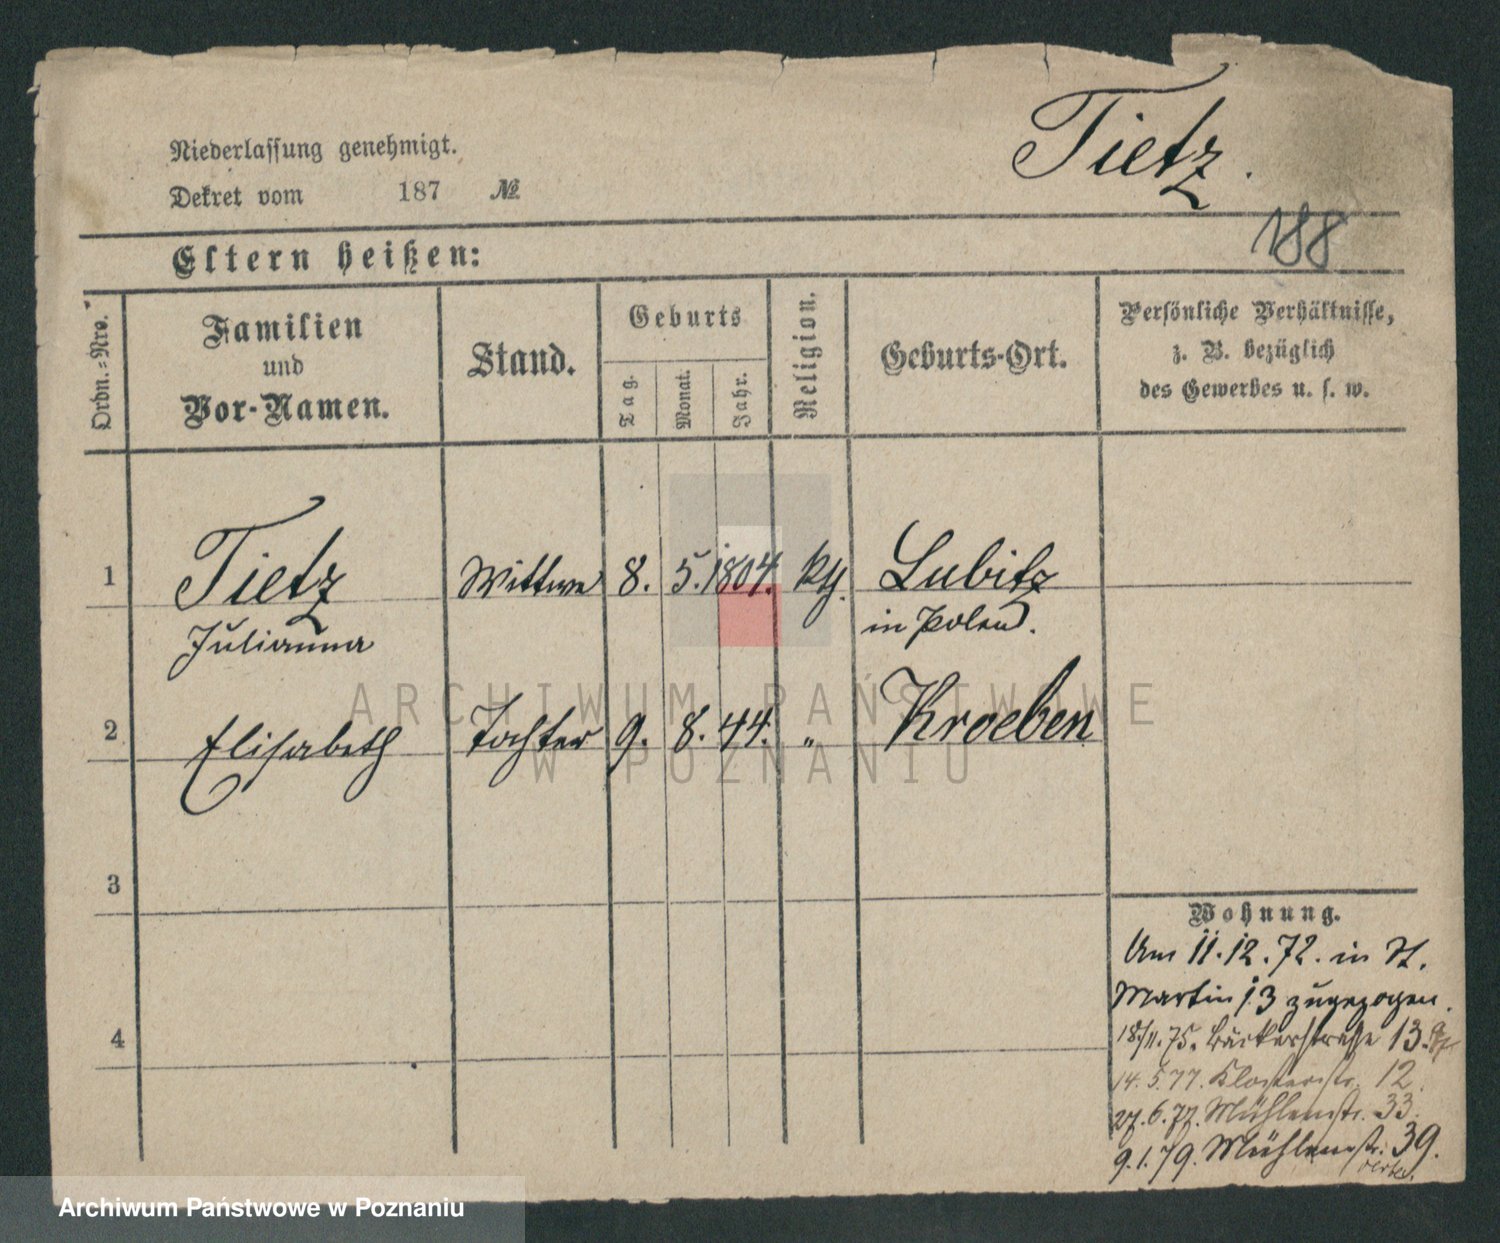 Tietz.
Niederlassung genehmigt.
Dekret vom 187 №
188
Eltern heißen:
Ordn.-Nro.
Familien
und
Vor-Namen.
Stand.
Geburts
Tag.
Monat.
Jahr.
Religion.
Geburts-Ort.
Persönliche Verhältnisse,
z. B. bezüglich
des Gewerbes u. s. w.
1 Tietz Wittwe 8. 5. 1804. kth. Lubitz
Julianna in Polen.
2 Elisabeth Tochter 9. 8. 44. " Kroeben
3
4
Wohnung.
Am 11.12.72. in St.
Martin 13 zugezogen.
18/11.75. Bäckerstrasse 13.
14.5.77. Klosterstr. 12.
27.6.77. Mühlenstr. 33.
9.1.79. Mühlenstr. 39.
ARCHIWUM PAŃSTWOWE
W POZNANIU
Archiwum Państwowe w Poznaniu